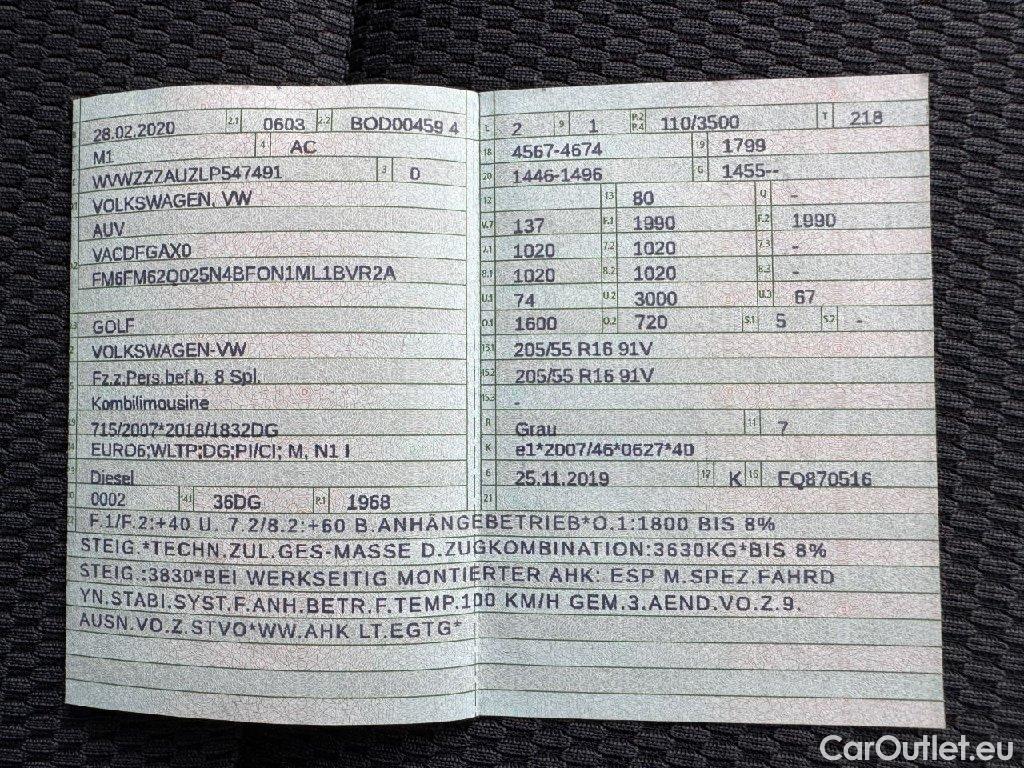 28.02.2020 2.1 0603 2.2 BOD00459 4
M1 4 AC
WVWZZZAUZLP547491 3 0
VOLKSWAGEN, VW
AUV
VACDFGAX0
FM6FM62Q025N4BFON1ML1BVR2A
GOLF
VOLKSWAGEN-VW
Fz.z.Pers.bef.b. 8 Spl.
Kombilimousine
715/2007*2018/1832DG
EURO6;WLTP;DG;PI/CI; M, N1 I
Diesel
0002 36DG P.1 1968
L 2 9 1 P.2 P.4 110/3500 T 218
18 4567-4674 19 1799
20 1446-1496 G 1455--
12 13 80 Q -
V.7 137 F.1 1990 F.2 1990
7.1 1020 7.2 1020 7.3 -
8.1 1020 8.2 1020 8.3 -
U.1 74 U.2 3000 U.3 67
O.1 1600 O.2 720 S.1 5 S.2 -
15.1 205/55 R16 91V
15.2 205/55 R16 91V
15.3 -
R Grau 11 7
K e1*2007/46*0627*40
6 25.11.2019 17 K 16 FQ870516
21
F.1/F.2:+40 U. 7.2/8.2:+60 B.ANHÄNGEBETRIEB*O.1:1800 BIS 8%
STEIG.*TECHN.ZUL.GES-MASSE D.ZUGKOMBINATION:3630KG*BIS 8%
STEIG.:3830*BEI WERKSEITIG MONTIERTER AHK: ESP M.SPEZ.FAHRD
YN.STABI.SYST.F.ANH.BETR.F.TEMP.100 KM/H GEM.3.AEND.VO.Z.9.
AUSN.VO.Z.STVO*WW.AHK LT.EGTG*
CarOutlet.eu